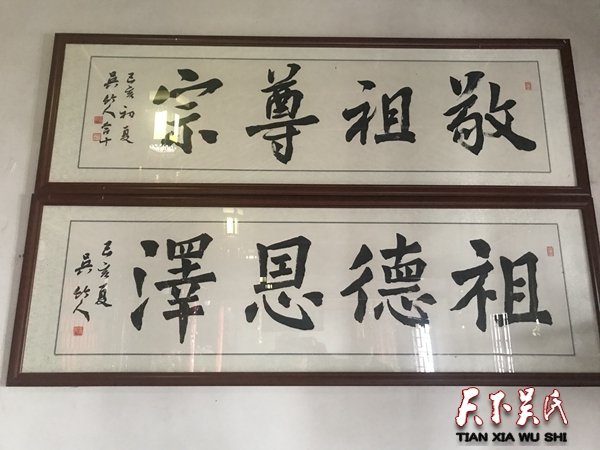 敬祖尊宗
己亥初夏
吳竹人合十
祖德恩澤
己亥夏
吳竹人
天下吴氏
TIAN XIA WU SHI